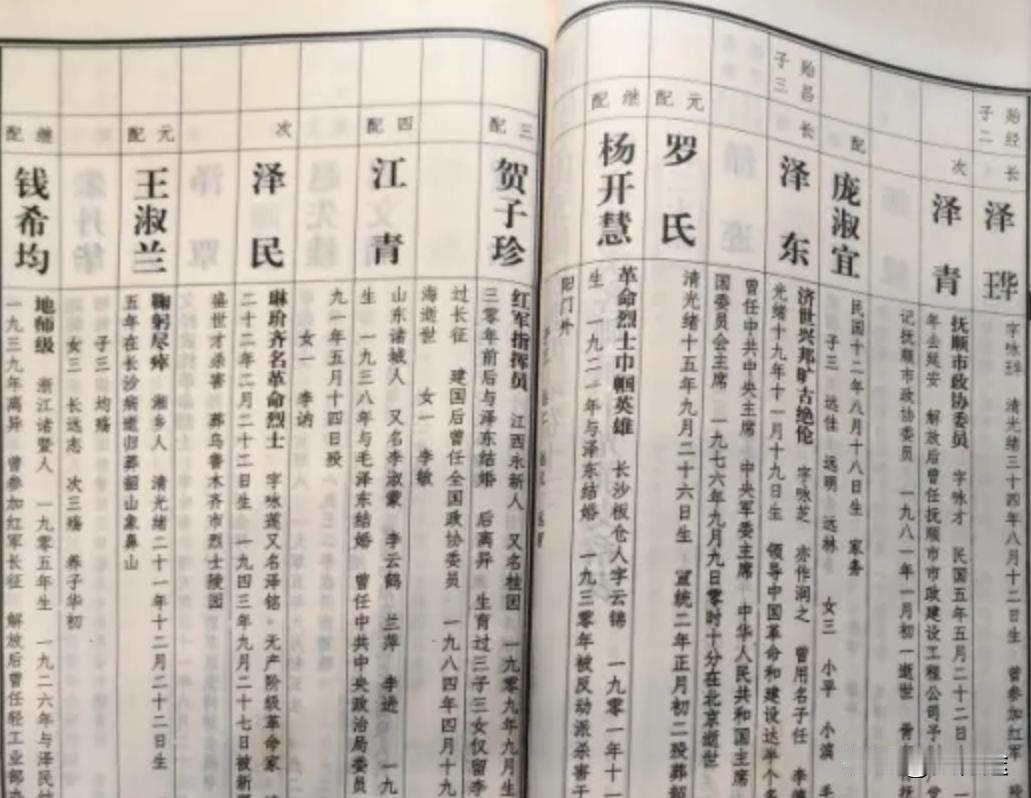 贻经长子二
泽珄
字咏珄 清光绪三十四年八月十二日生 曾参加红军
次
泽青
抚顺市政协委员 字咏才 民国五年五月二十二日
年去延安 解放后曾任抚顺市市政建设工程公司予
记抚顺市政协委员 一九八一年一月初一逝世
配
庞淑宜
民国十二年八月十八日生 家务
子三 远佳 远明 远林 女三 小平 小滨
贻昌长子三
泽东
济世兴邦旷古绝伦 字咏芝 亦作润之 曾用名子任 李
光绪十九年十一月十九日生 领导中国革命和建设达半个多
曾任中共中央主席 中央军委主席 中华人民共和国主席
国委员会主席 一九七六年九月九日零时十分在北京逝世
元配
罗氏
清光绪十五年九月二十六日生 宣统二年正月初二殁葬韶
继配
杨开慧
革命烈士巾帼英雄 长沙板仓人字云锦 一九〇一年十一
生 一九二一年与泽东结婚 一九三零年被反动派杀害于
阳门外
三配
贺子珍
红军指挥员 江西永新人 又名桂园 一九零九年九月生
三零年前后与泽东结婚 后离异 生育过三子三女仅留李
过长征 建国后曾任全国政协委员 一九八四年四月十九
海逝世 女一 李敏
四配
江青
山东诸城人 又名李淑蒙 李云鹤 兰萍 李进 一九
生 一九三八年与毛泽东结婚 曾任中共中央政治局委员
九一年五月十四日殁
女一 李讷
次
泽民
琳玠齐名革命烈士 字咏莲又名泽铭。无产阶级革命家
二十二年二月二十二日生 一九四三年九月二十七日被新疆
盛世才杀害 葬乌鲁木齐市烈士陵园
元配
王淑兰
鞠躬尽瘁 湘乡人 清光绪二十一年十二月二十二日生
五年在长沙病逝归葬韶山象鼻山
子三 均殇
女三 长远志 次三殇 养子华初
继配
钱希均
地师级 浙江诸暨人 一九零五年生 一九二六年与泽民结
一九三九年离异 曾参加红军长征 解放后曾任轻工业部